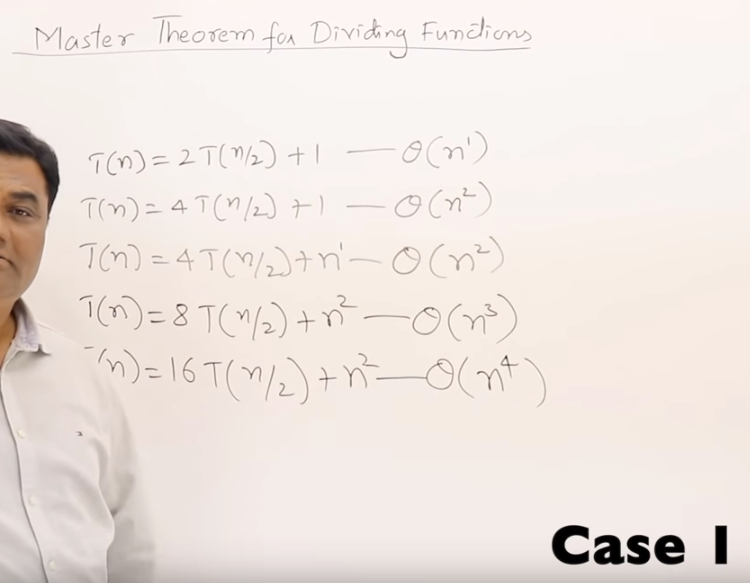 Master Theorem for Dividing Functions
T(n) = 2 T(n/2) + 1 — Θ(n¹)
T(n) = 4 T(n/2) + 1 — Θ(n²)
T(n) = 4 T(n/2) + n¹ — Θ(n²)
T(n) = 8 T(n/2) + n² — Θ(n³)
T(n) = 16 T(n/2) + n² — Θ(n⁴)
Case 1